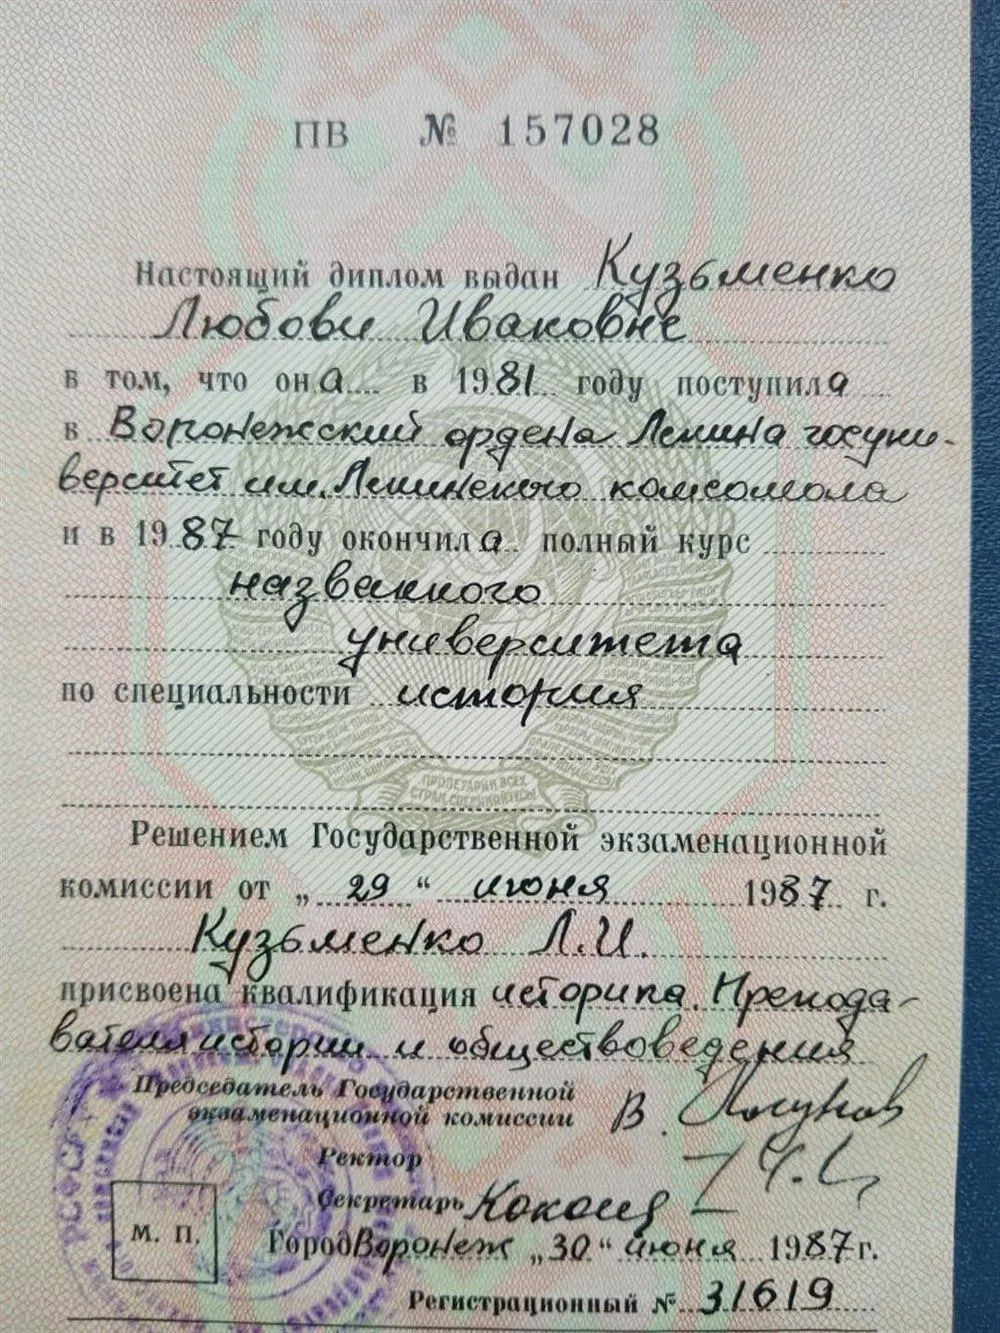 ПВ № 157028
Настоящий диплом выдан Кузьменко
Любови Ивановне
в том, что она в 1981 году поступила
в Воронежский ордена Ленина госуни-
верситет им. Ленинского комсомола
и в 1987 году окончила полный курс
названного
университета
по специальности история
ПРОЛЕТАРИИ ВСЕХ
СТРАН, СОЕДИНЯЙТЕСЬ!
Решением Государственной экзаменационной
комиссии от „29“ июня 1987 г.
Кузьменко Л.И.
присвоена квалификация историка. Препода-
вателя истории и обществоведения
Председатель Государственной
экзаменационной комиссии В.
Ректор
Секретарь
М. П.
Город Воронеж „30“ июня 1987 г.
Регистрационный № 31619